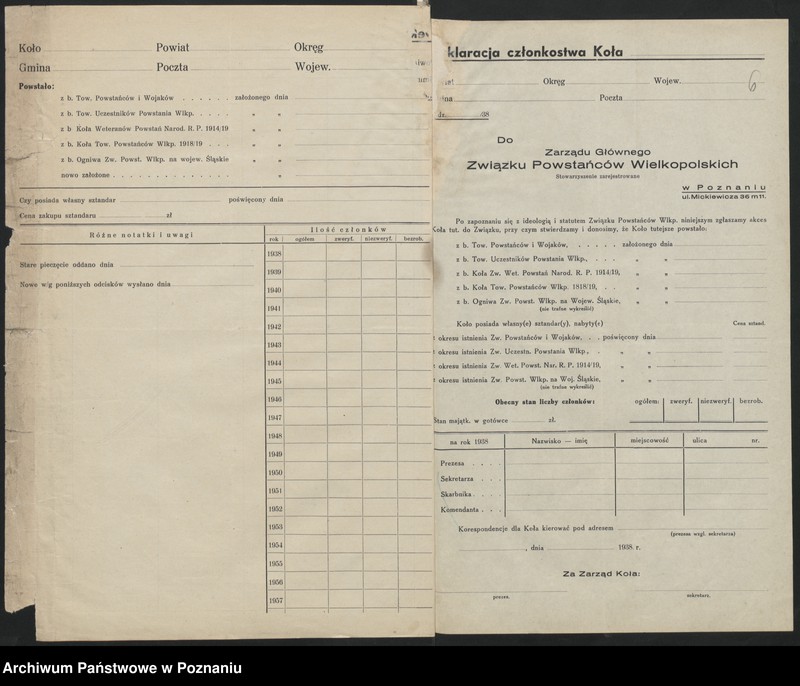 Koło Powiat Okręg
Gmina Poczta Wojew.
Powstało:
z b. Tow. Powstańców i Wojaków . . . . . . założonego dnia
z b. Tow. Uczestników Powstania Wlkp. . . . . „ „
z b Koła Weteranów Powstań Narod. R. P. 1914/19 „ „
z b. Koła Tow. Powstańców Wlkp. 1918/19 . . . „ „
z b. Ogniwa Zw. Powst. Wlkp. na wojew. Śląskie „ „
nowo założone . . . . . . . . . . . . . . „
Czy posiada własny sztandar poświęcony dnia
Cena zakupu sztandaru zł
Różne notatki i uwagi
Ilość członków
rok ogółem zweryf. niezweryf. bezrob.
Stare pieczęcie oddano dnia
Nowe w/g poniższych odcisków wysłano dnia
1938
1939
1940
1941
1942
1943
1944
1945
1946
1947
1948
1949
1950
1951
1952
1953
1954
1955
1956
1957
klaracja członkostwa Koła
Okręg Wojew.
6
ina Poczta
38
Do
Zarządu Głównego
Związku Powstańców Wielkopolskich
Stowarzyszenie zarejestrowane
w Poznaniu
ul. Mickiewicza 36 m 11.
Po zapoznaniu się z ideologią i statutem Związku Powstańców Wlkp. niniejszym zgłaszamy akces
Koła tut. do Związku, przy czym stwierdzamy i donosimy, że Koło tutejsze powstało:
z b. Tow. Powstańców i Wojaków, . . . . . założonego dnia
z b. Tow. Uczestników Powstania Wlkp., . . . „ „
z b. Koła Zw. Wet. Powstań Narod. R. P. 1914/19, „ „
z b. Koła Tow. Powstańców Wlkp. 1818/19, . . „ „
z b. Ogniwa Zw. Powst. Wlkp. na Wojew. Śląskie, „ „
(nie trafne wykreślić)
Koło posiada własny(e) sztandar(y), nabyty(e) Cena sztand.
okresu istnienia Zw. Powstańców i Wojaków, . . poświęcony dnia
okresu istnienia Zw. Uczestn. Powstania Wlkp., . „ „
okresu istnienia Zw. Wet. Powst. Nar. R. P. 1914/19, „ „
okresu istnienia Zw. Powst. Wlkp. na Woj. Śląskie, „ „
(nie trafne wykreślić)
Obecny stan liczby członków: ogółem: zweryf. niezweryf. bezrob.
Stan majątk. w gotówce zł.
na rok 1938 Nazwisko — imię miejscowość ulica nr.
Prezesa . . . .
Sekretarza . . .
Skarbnika . . .
Komendanta . . .
Korespondencje dla Koła kierować pod adresem
(prezesa wzgl. sekretarza)
, dnia 1938. r.
Za Zarząd Koła:
prezes. sekretarz.
Archiwum Państwowe w Poznaniu